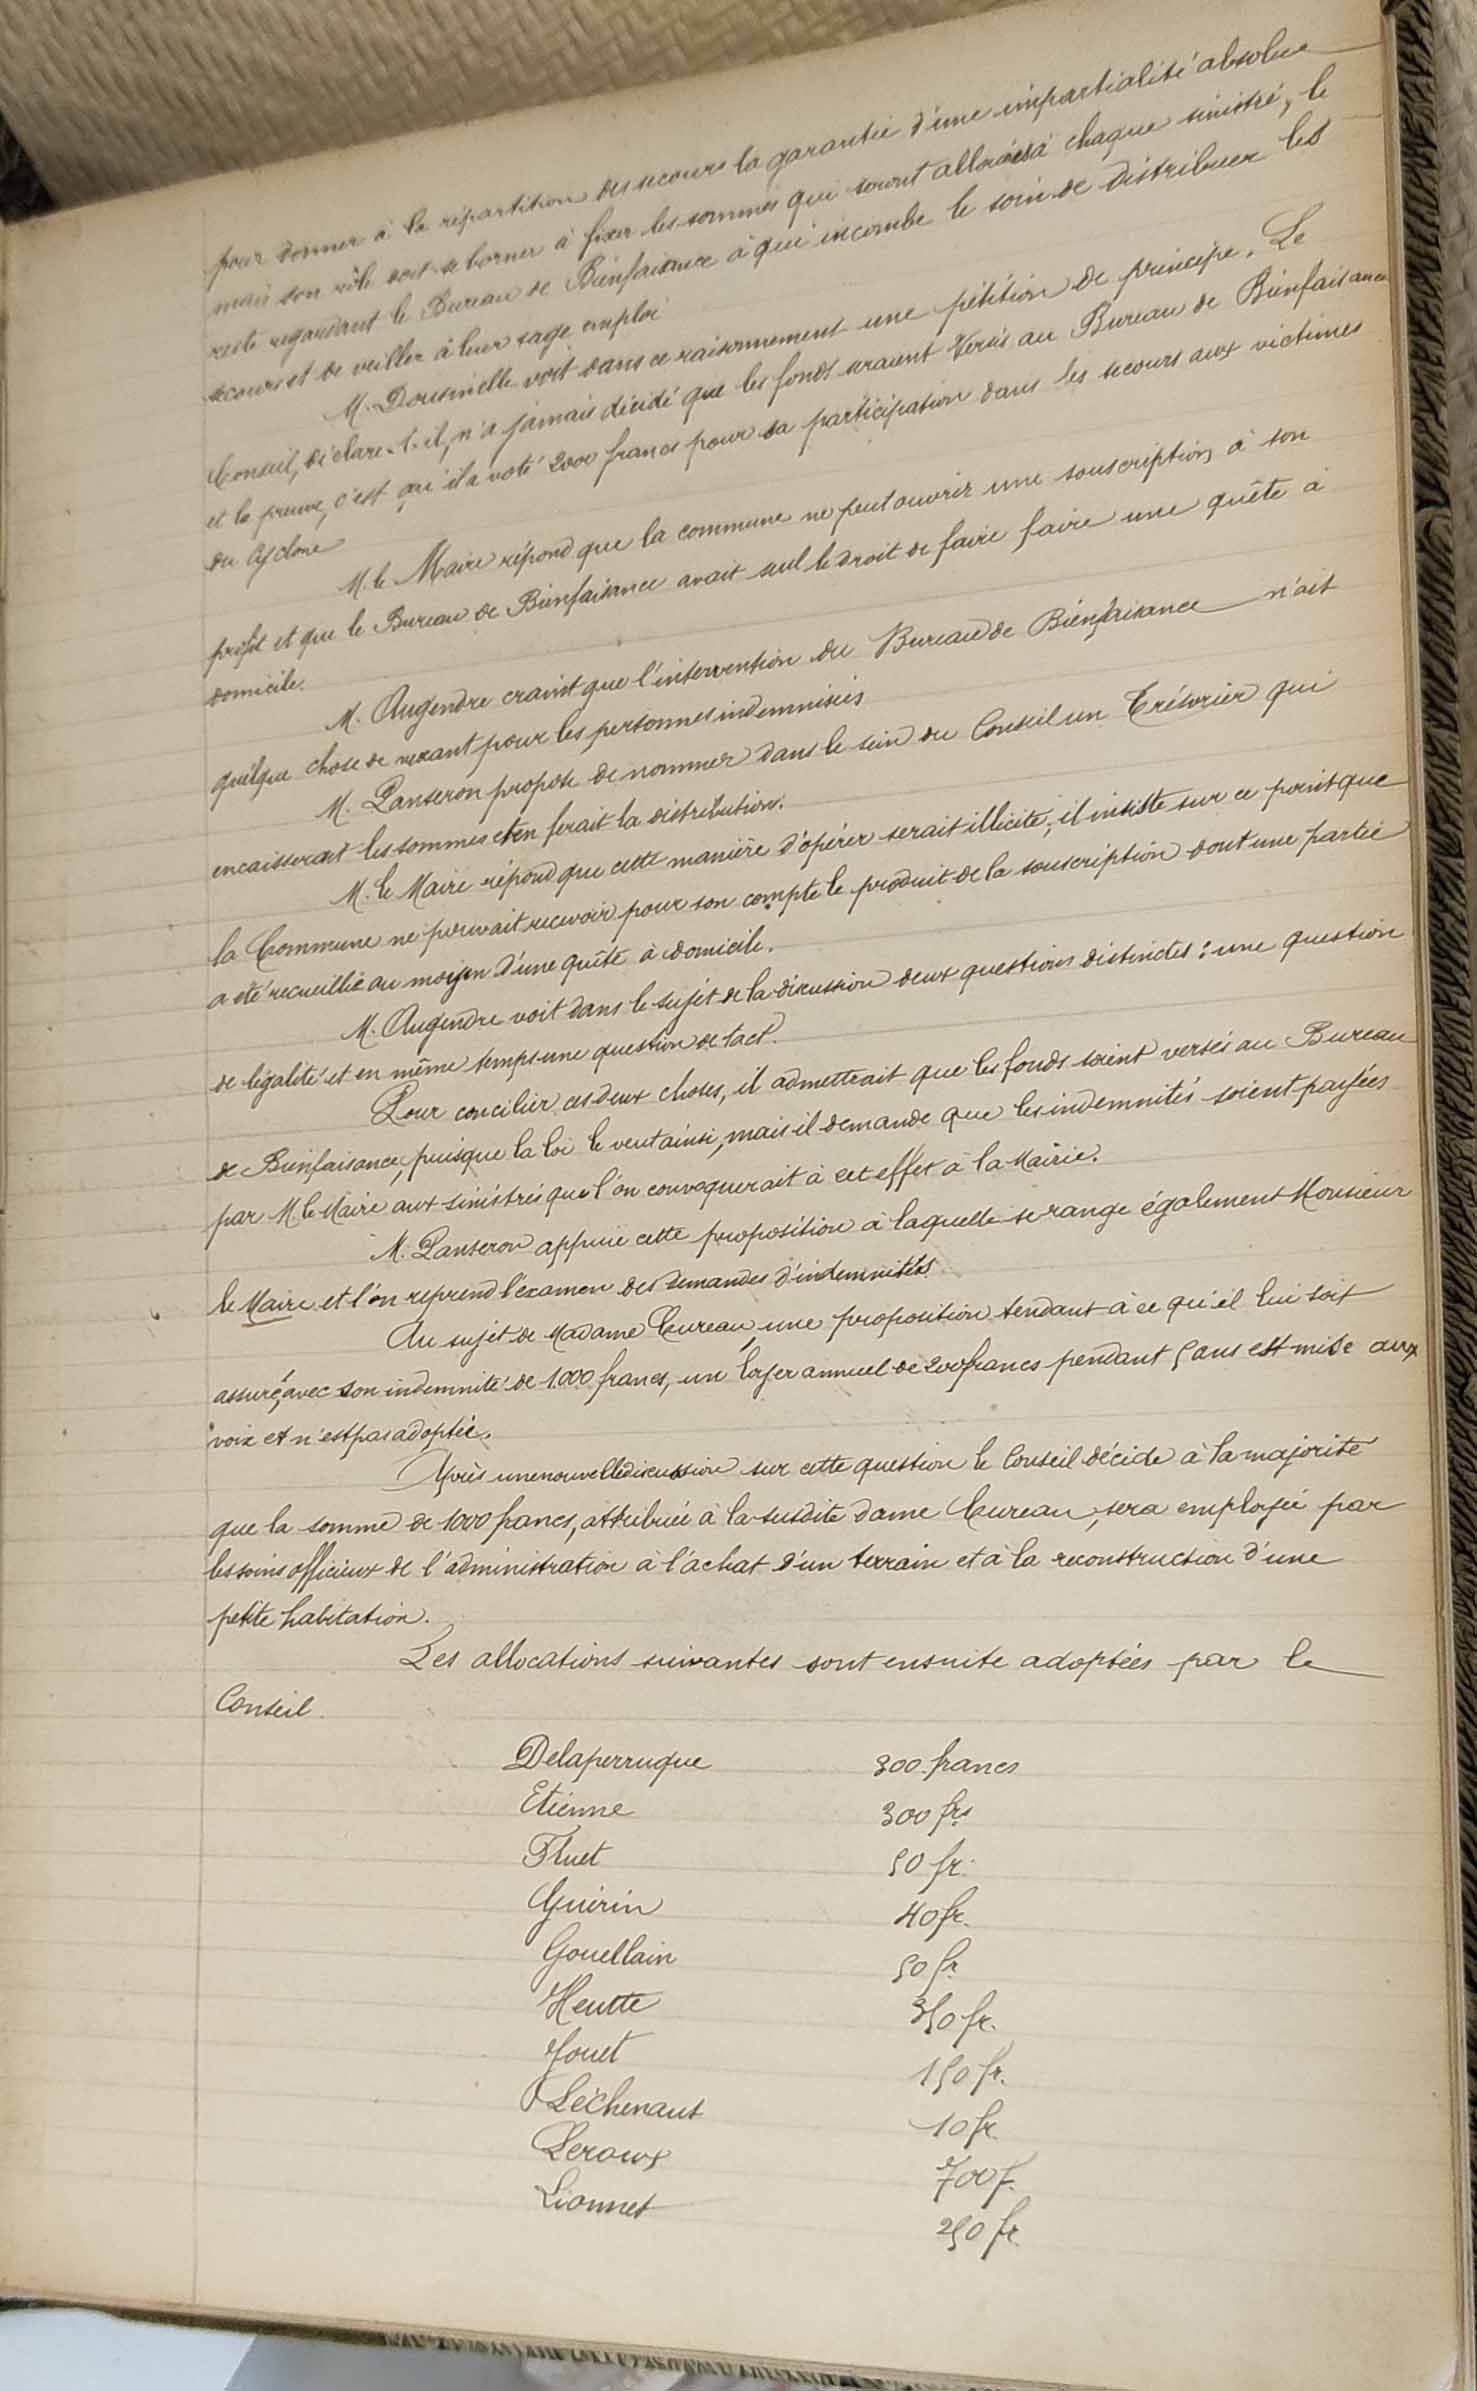 pour donner à la répartition des secours la garantie d'une impartialité absolue
mais son rôle doit se borner à fixer les sommes qui seront allouées à chaque sinistré, le
reste regardant le Bureau de Bienfaisance à qui incombe le soin de distribuer les
secours et de veiller à leur sage emploi
M. Dousinelle voit dans ce raisonnement une pétition de principe. Le
Conseil, déclare-t-il, n'a jamais décidé que les fonds seraient versés au Bureau de Bienfaisance
et la preuve, c'est qu'il a voté 2000 francs pour sa participation dans les secours aux victimes
du Cyclone
M. le Maire répond que la commune ne peut ouvrir une souscription à son
profit et que le Bureau de Bienfaisance avait seul le droit de faire faire une quête à
domicile.
M. Augendre craint que l'intervention du Bureau de Bienfaisance n'ait
quelque chose de vexant pour les personnes indemnisées
M. Panseron propose de nommer dans le sein du Conseil un Trésorier qui
encaisserait les sommes et en ferait la distribution.
M. le Maire répond que cette manière d'opérer serait illicite; il insiste sur ce point que
la Commune ne pouvait recevoir pour son compte le produit de la souscription dont une partie
a été recueillie au moyen d'une quête à domicile.
M. Augendre voit dans le sujet de la discussion deux questions distinctes: une question
de légalité et en même temps une question de tact.
Pour concilier ces deux choses, il admettrait que les fonds soient versés au Bureau
de Bienfaisance, puisque la loi le veut ainsi, mais il demande que les indemnités soient payées
par M. le Maire aux sinistrés que l'on convoquerait à cet effet à la Mairie.
M. Panseron appuie cette proposition à laquelle se range également Monsieur
le Maire et l'on reprend l'examen des demandes d'indemnités.
Au sujet de Madame Cureau, une proposition tendant à ce qu'il lui soit
assuré, avec son indemnité de 1.000 francs, un loyer annuel de 200 francs pendant 5 ans est mise aux
voix et n'est pas adoptée.
Après une nouvelle discussion sur cette question le Conseil décide à la majorité
que la somme de 1000 francs, attribuée à la susdite dame Cureau, sera employée par
les soins officieux de l'administration à l'achat d'un terrain et à la reconstruction d'une
petite habitation.
Les allocations suivantes sont ensuite adoptées par le
Conseil
Delaperruque 300 francs
Etienne 300 frs
Fluet 50 fr.
Guérin 40 fr.
Gouellain 50 fr
Heutte 350 fr.
Jouet 150 fr.
Léchenaut 10 fr
Leroux 700 f.
Lionnet 250 fr